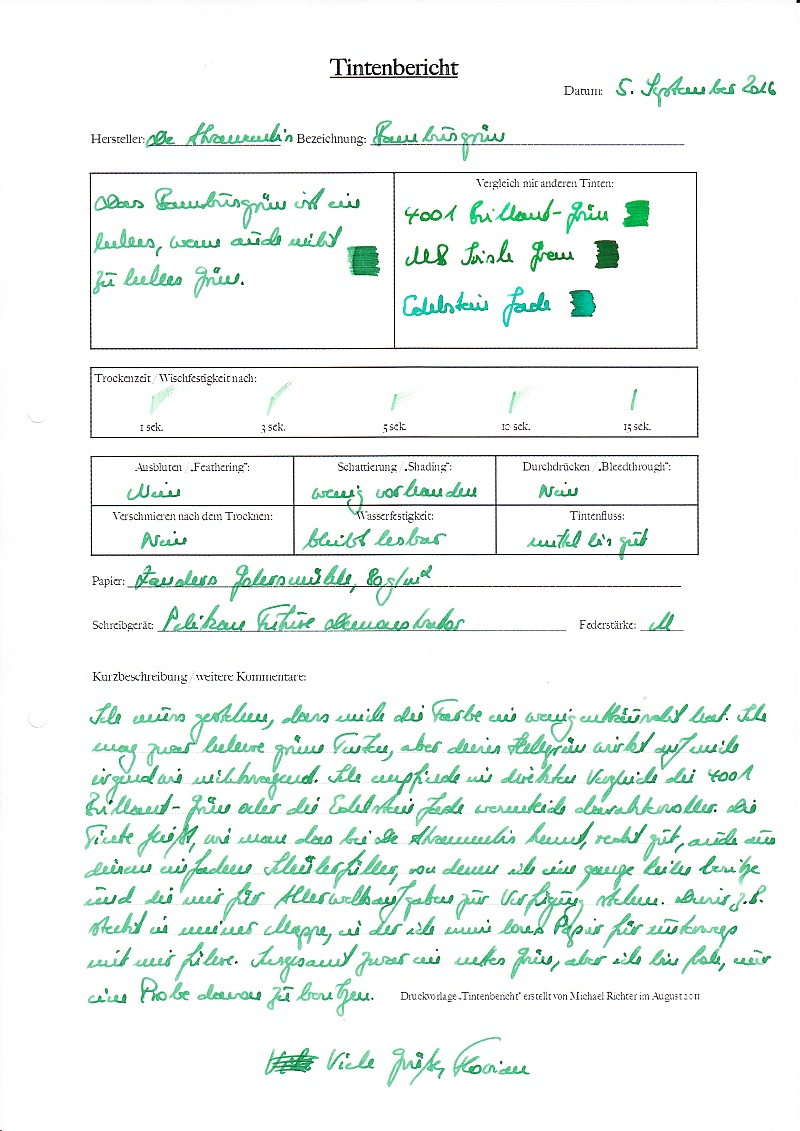 Tintenbericht
Datum: 5. September 2016
Hersteller: De Atramentis Bezeichnung: Bambusgrün
Das Bambusgrün ist ein
helles, wenn auch nicht
zu helles Grün.
Vergleich mit anderen Tinten:
4001 Brillant-Grün
MB Irish Green
Edelstein Jade
Trockenzeit / Wischfestigkeit nach:
1 sek. 3 sek. 5 sek. 10 sek. 15 sek.
Ausbluten / „Feathering“: Schattierung / „Shading“: Durchdrücken / „Bleedthrough“:
Nein wenig vorhanden Nein
Verschmieren nach dem Trocknen: Wasserfestigkeit: Tintenfluss:
Nein bleibt lesbar mittel bis gut
Papier: Zanders Gohrsmühle, 80g/m²
Schreibgerät: Pelikan Future Federstärke: M
Kurzbeschreibung / weitere Kommentare:
Ich muss gestehen, dass mich die Farbe ein wenig enttäuscht hat. Ich
mag zwar hellere grüne Tinten, aber dieses Hellgrün wirkt auf mich
irgendwie nichtssagend. Ich empfinde im direkten Vergleich die 4001
Brillant-Grün oder die Edelstein Jade charaktervoller. Die
Tinte fließt, wie man das bei De Atramentis kennt, recht gut, auch aus
diesem einfachen Schülerfüller, von denen ich eine ganze Reihe besitze
und die mir für Allerweltsaufgaben zur Verfügung stehen. Dieser z.B.
steckt in meiner Mappe, in der ich mein loses Papier für unterwegs
mit mir führe. Insgesamt zwar ein nettes Grün, aber ich bin froh, nur
eine Probe davon zu besitzen.
Druckvorlage „Tintenbericht“ erstellt von Michael Richter im August 2011
Viele Grüße, Florian